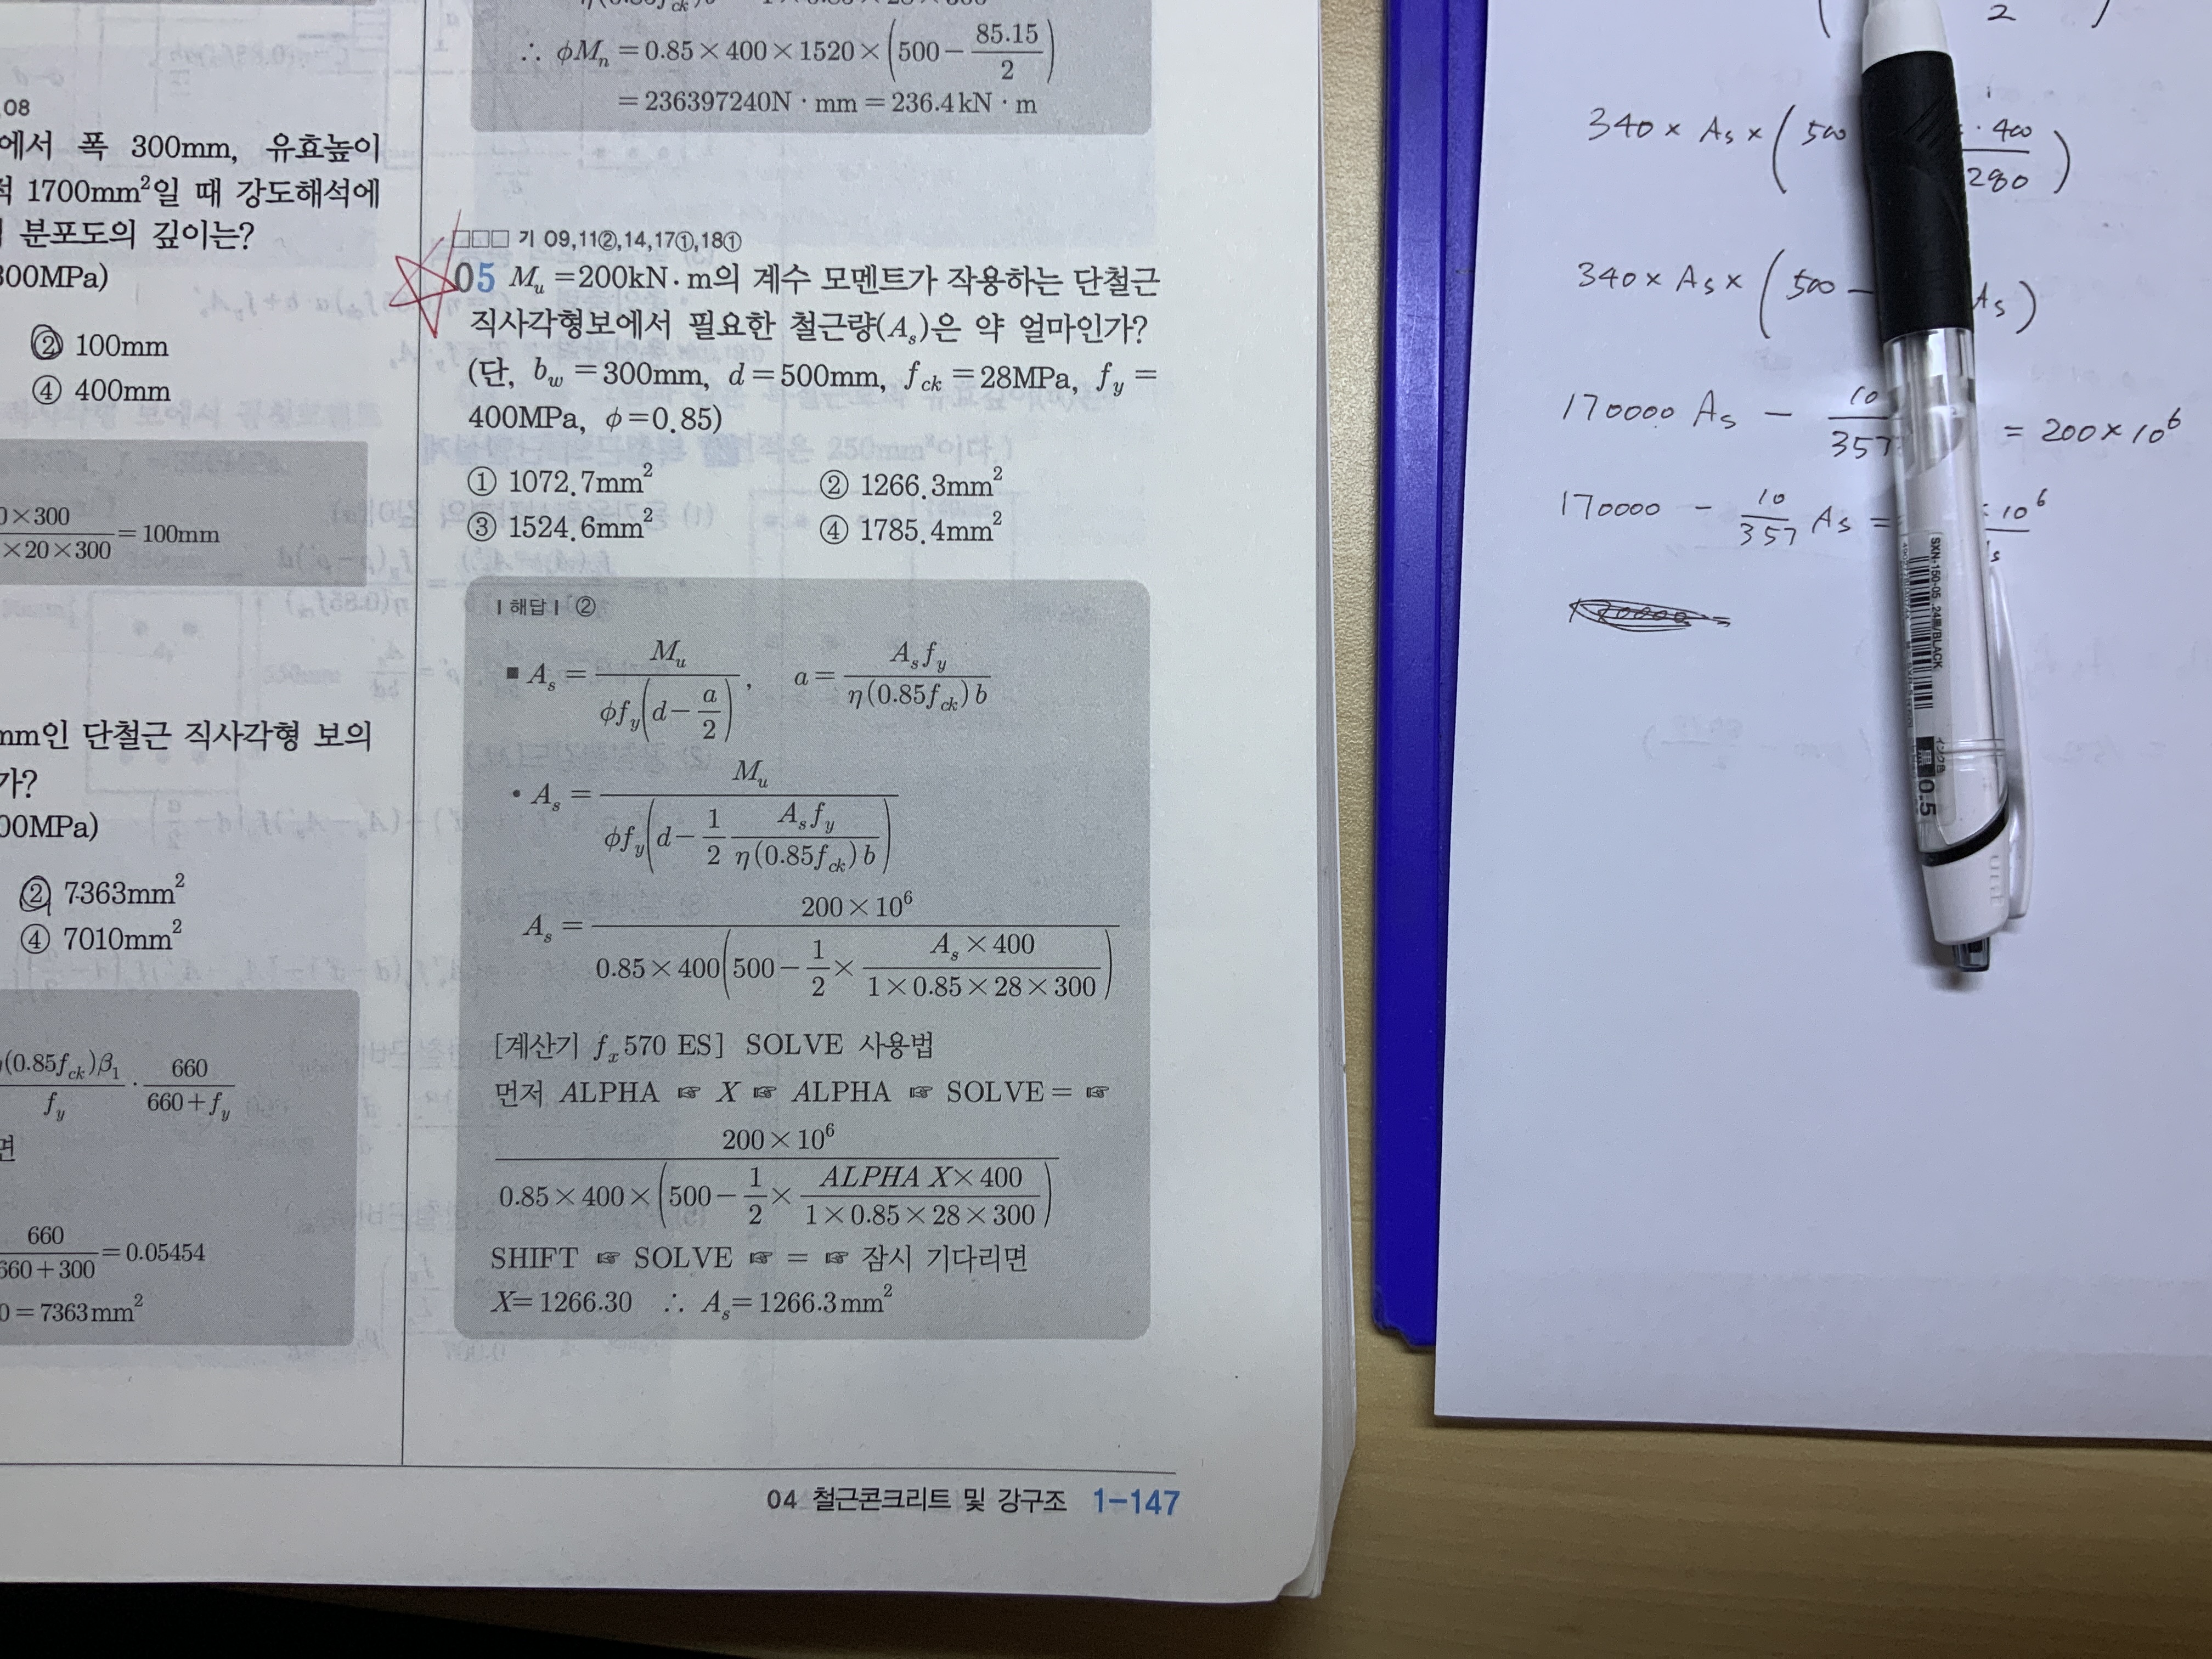 08
에서 폭 300mm, 유효높이
적 1700mm²일 때 강도해석에
분포도의 깊이는?
300MPa)
② 100mm
④ 400mm
0×300
×20×300 = 100mm
mm인 단철근 직사각형 보의
가?
00MPa)
② 7363mm²
④ 7010mm²
(0.85f_ck)β₁ / f_y · 660 / (660+f_y)
면
660 / (660+300) = 0.05454
0 = 7363mm²
∴ φM_n = 0.85×400×1520×(500 − 85.15/2)
= 236397240N·mm = 236.4kN·m
□□□ 기 09,11②,14,17①,18①
05 M_u = 200kN·m의 계수 모멘트가 작용하는 단철근
직사각형보에서 필요한 철근량(A_s)은 약 얼마인가?
(단, b_w = 300mm, d = 500mm, f_ck = 28MPa, f_y =
400MPa, φ = 0.85)
① 1072.7mm² ② 1266.3mm²
③ 1524.6mm² ④ 1785.4mm²
| 해답 | ②
■ A_s = M_u / φf_y(d − a/2), a = A_s f_y / η(0.85f_ck)b
• A_s = M_u / φf_y(d − 1/2 A_s f_y / η(0.85f_ck)b)
A_s = 200×10⁶ / 0.85×400(500 − 1/2 × A_s×400 / 1×0.85×28×300)
[계산기 f_x 570 ES] SOLVE 사용법
먼저 ALPHA ☞ X ☞ ALPHA ☞ SOLVE = ☞
200×10⁶ / 0.85×400×(500 − 1/2 × ALPHA X×400 / 1×0.85×28×300)
SHIFT ☞ SOLVE ☞ = ☞ 잠시 기다리면
X = 1266.30 ∴ A_s = 1266.3mm²
04 철근콘크리트 및 강구조 1-147
2
340 × As × (500 · 400 / 280)
340 × As × (500 − As)
170000 As − 10/357 = 200×10⁶
170000 − 10/357 As = 10⁶
SXN-150-05 .24 BLACK
0.5
UNI